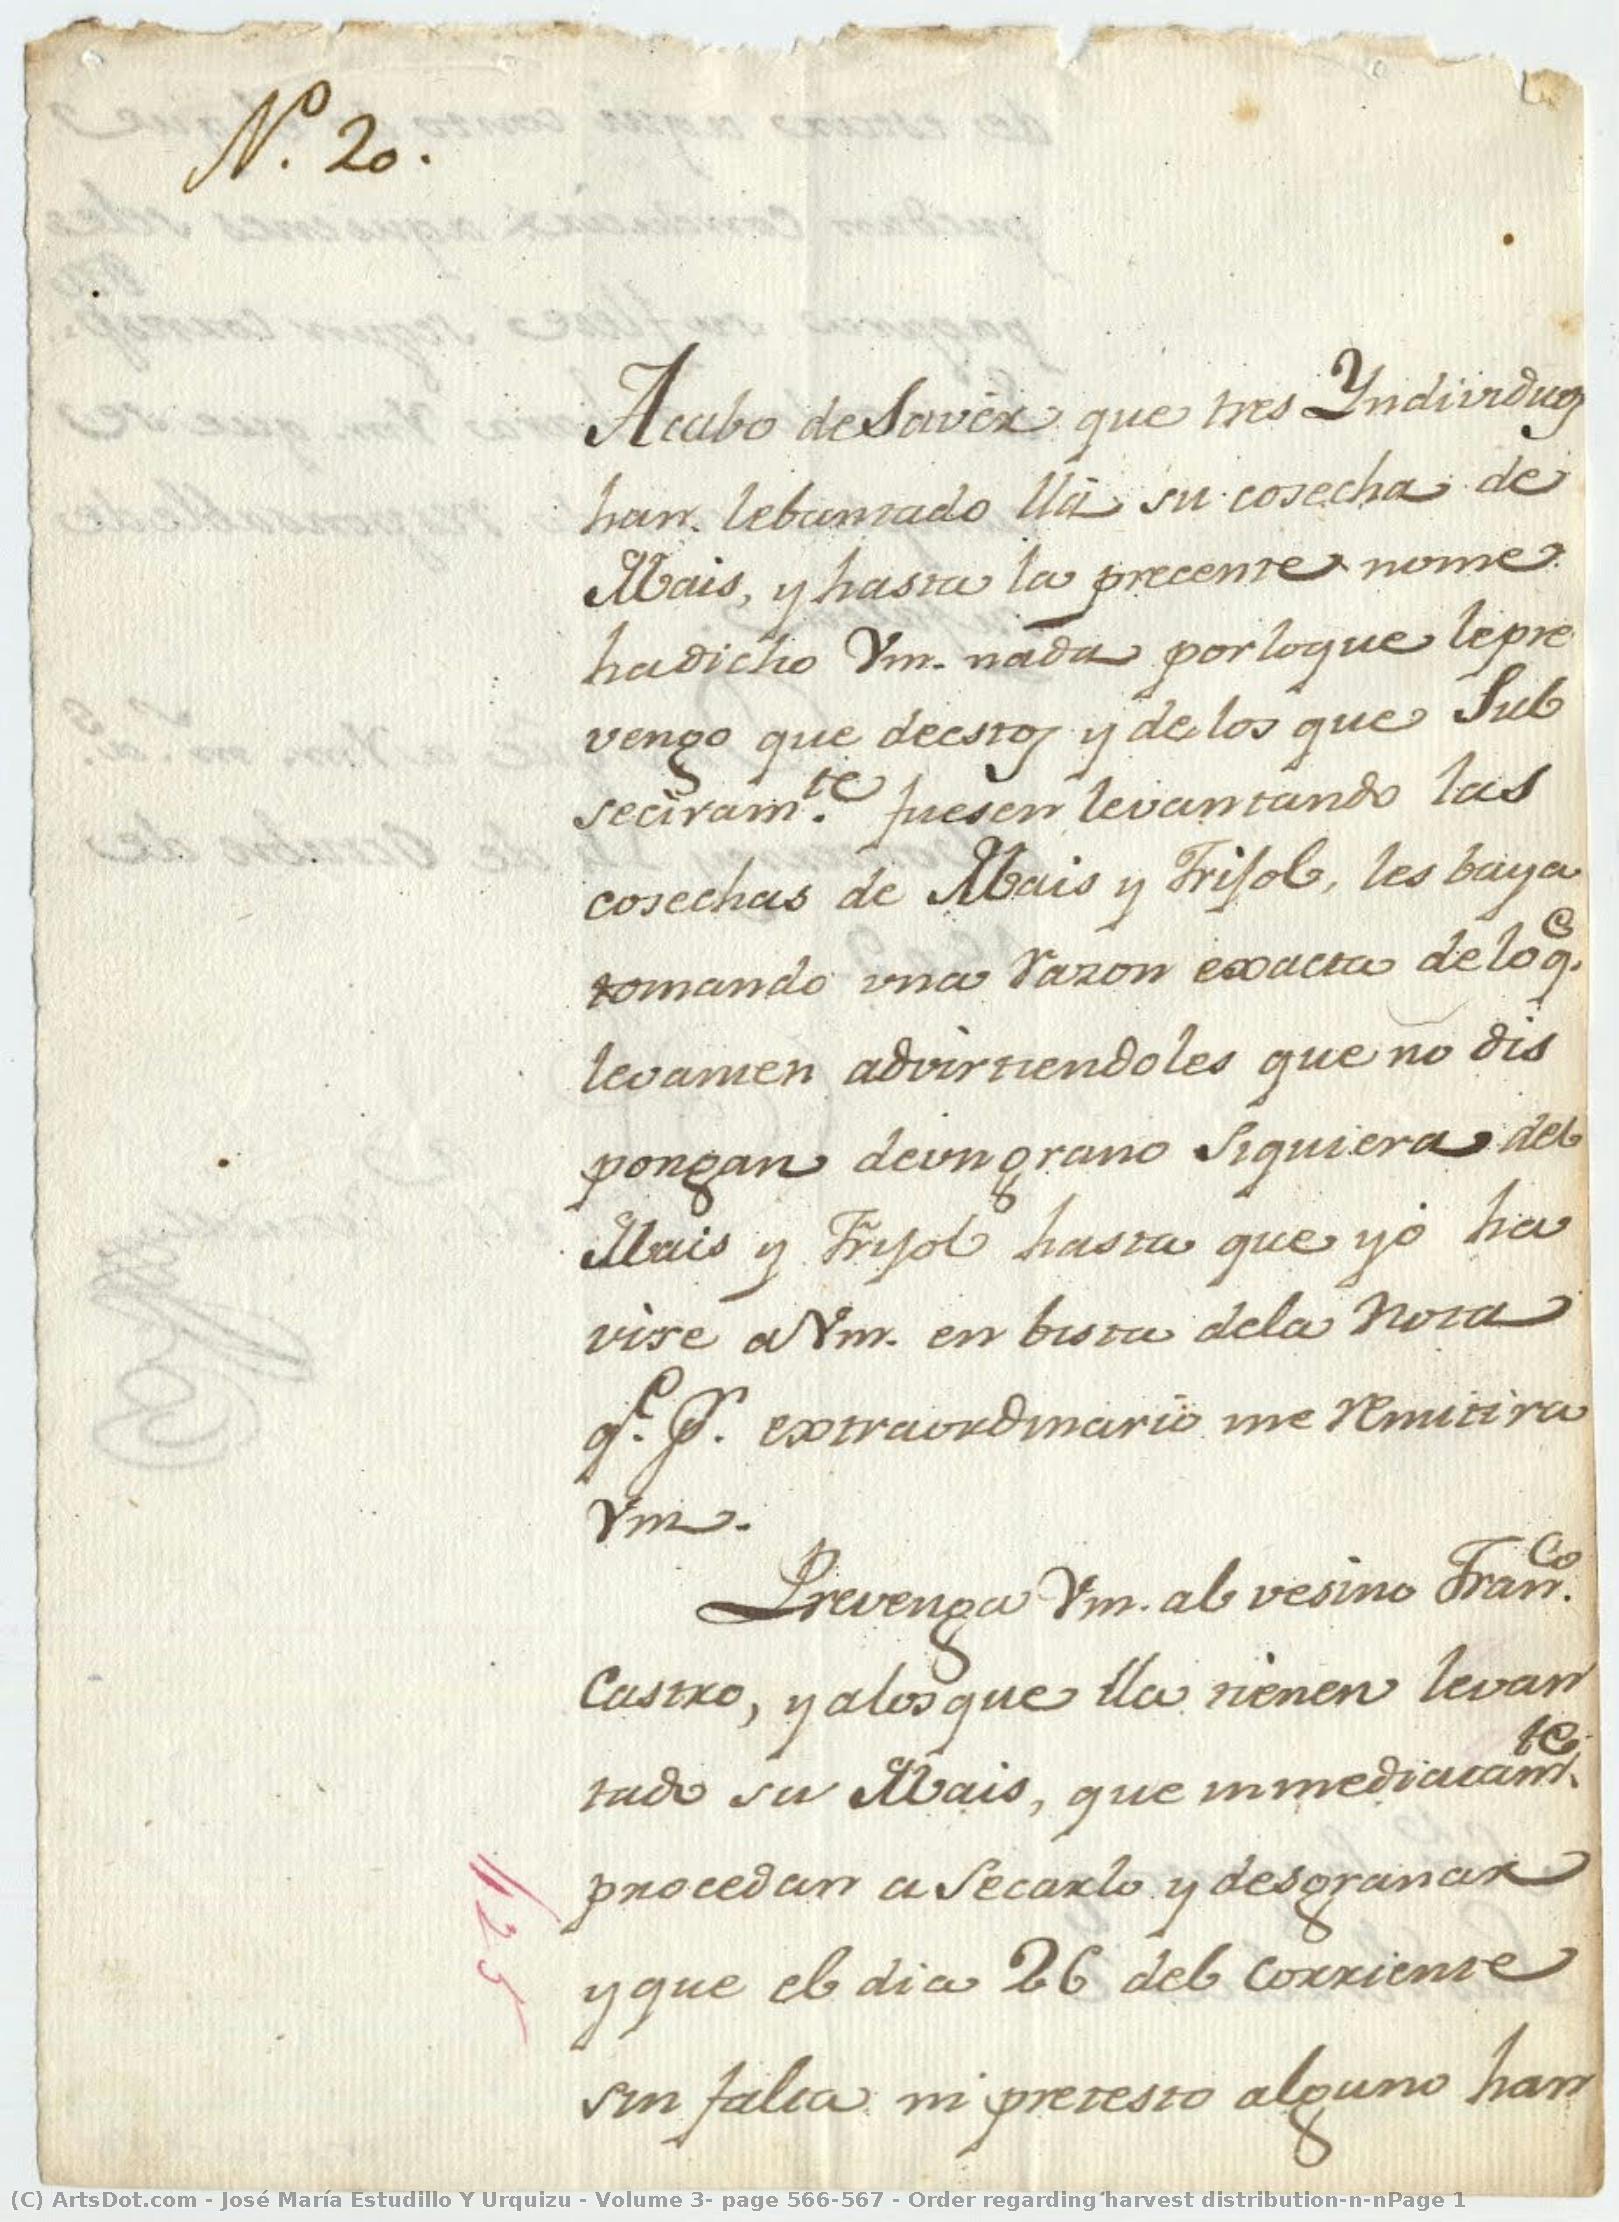 Nº. 20.
Acabo de Savér que tres Yndividuos
han lebantado llá su cosecha de
Mais, y hasta la precente nome
ha dicho Vm. nada por loque le pre
vengo que de estos y de los que Sub
secivam.te fuesen levantando las
cosechas de Mais y Frisol, les baya
tomando una razon exacta de lo q.e
levanten advirtiendoles que no dis
pongan de un grano siquiera del
Mais y Frisol hasta que yó ha
vise a Vm. en bista dela Nota
q.e p.r extraordinario me remitira
Vm.
Prevenga Vm. al vesino Fran.co
Castro, y a los que lla tienen levan
tado su Mais, que inmediatam.te
procedan a Secarlo y desgranar
y que el dia 26 del corriente
sin falta ni pretesto alguno han
1125
(C) ArtsDot.com - José María Estudillo Y Urquizu - Volume 3- page 566-567 - Order regarding harvest distribution-n-nPage 1